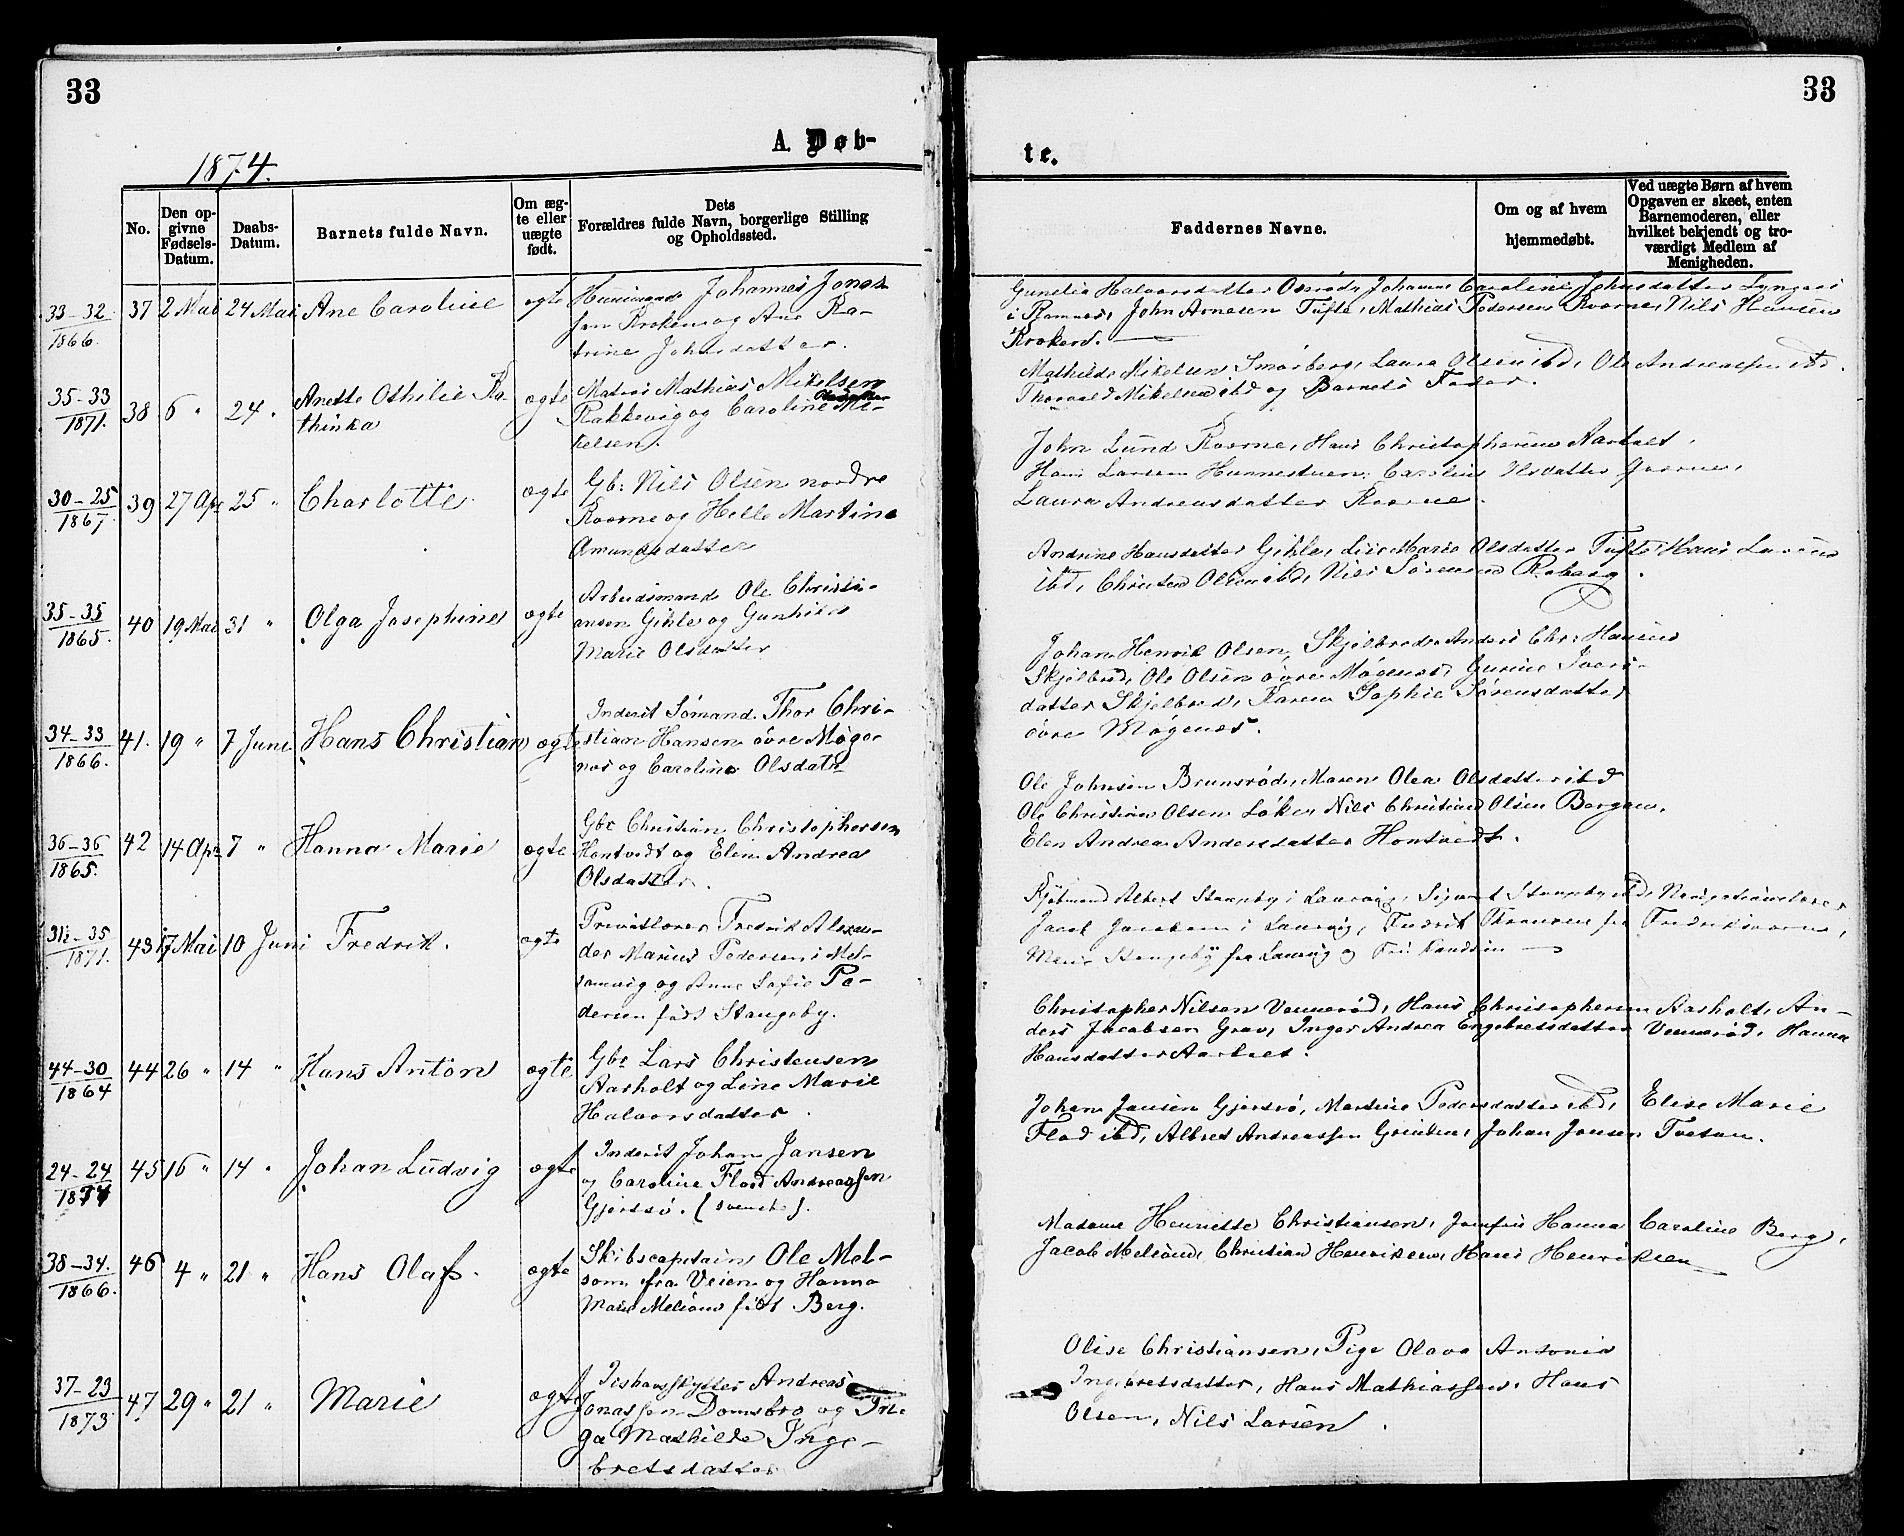 33
33
A. Døb-
te.
1874.
No.
Den op-
givne
Fødsels-
Datum.
Daabs-
Datum.
Barnets fulde Navn.
Om æg-
te eller
uægte
født.
Dets
Forældres fulde Navn, borgerlige Stilling
og Opholdssted.
Faddernes Navne.
Om og af hvem
hjemmedøbt.
Ved uægte Børn af hvem
Opgaven er skeet, enten
Barnemoderen, eller
hvilket bekjendt og tro-
værdigt Medlem af
Menigheden.
33-32
1866.
37 2 Mai 24 Mai Ane Caroline ægte
Johannes Jonas
sen og Ane Ka-
trine Johsdatter.
Gunelia Halvorsdatter Johanne Caroline Johnsdatter
i Ramnes, John Arnesen Tufte, Mathias Pedersen Roorne, Nils Hansen
35-33
1871.
38 6 " 24 " Anette Othilie Ka-
thinka
ægte
Matros Mathias Mikelsen
Rakkevig og Caroline Mi-
kelsen.
Mathilde Mikelsen Smørberg, Laura Olsen ibd, Ole Andreassen ibd.
Thorvald Mikelsen ibd og Barnets Fader.
30-25
1867.
39 27 Apr 25 " Charlotte ægte
Gb: Nils Olsen nordre
Roorne og Helle Martine
Amundsdatter
John Lund Roorne, Hans Christophersen Aarholt,
Hans Larsen Hunnestuen, Caroline Olsdatter
Laura Andreasdatter Roorne.
35-35
1865.
40 19 Mai 31 " Olga Josephine ægte
Arbeidsmand Ole Christi-
ansen Gihle og Gunhild
Marie Olsdatter
Andrine Hansdatter Gihle, Lise Marie Olsdatter Tufte, Hans Larsen
ibd, Christen Olsen ibd, Nils Sørensen Raberg.
34-33
1866.
41. 19 " 7 Juni Hans Christian ægte
Inderst Sømand Thor Chri-
stian Hansen øvre Møge-
næs og Caroline Olsdatr
Johan Henrik Olsen, Skjelbred, Anders Chr: Hansen
Skjelbred, Ole Olsen øvre Møgenæs, Gurine Ivers-
datter Skjelbred, Karen Sophie Sørensdatter
øvre Møgenæs.
36-36
1865.
42 14 Apr 7 " Hanna Marie ægte
Gbr Christian Christophersen
Hontvedt og Elen Andrea
Olsdatter.
Ole Johnsen Brunsrød, Maren Olea Olsdatter ibd
Ole Christian Olsen Løke, Nils Christian Olsen Bergan,
Elen Andrea Andersdatter Hontvedt.
31½-35
1871.
43 17 Mai 10 Juni Fredrik. ægte
Privatlærer Fredrik Alexan-
der Marius Pedersen i Mel-
somvig og Anne Sofie Pe-
dersen født Stangeby.
Kjøbmand Albert Stangeby i Laurvig, Sigvart Stangeby ibd, Navigationslærer
Jacob Jacobsen i Laurvig, Fredrik Thranesen fra Fredriksværn,
Marie Stangeby fra Laurvig og Frk Knudsen
44-30
1864
44 26 " 14 " Hans Anton ægte
Gbr Lars Christensen
Aarholt og Line Marie
Halvorsdatter.
Christopher Nilsen Vennerød, Hans Christophersen Aarholt, An-
ders Jacobsen Grav, Inger Andrea Engebretsdatter Vennerød, Hanna
Hansdatter Aarholt.
24-24
1874
45 16 " 14 " Johan Ludvig ægte
Inderst Johan Jansen
og Caroline Flod Andreassen
Gjersø. (svenske).
Johan Jansen Gjersø, Martine Pedersdatter ibd, Elise Marie
Flod ibd, Albret Andreassen Grinden, Johan Jonsen Tveten.
38-34.
1866.
46 4 " 21 " Hans Olaf. ægte
Skibscaptain Ole Mel-
som fra Veien og Hanna
Marie Melsom født Berg.
Madame Henriette Christiansen, Jomfru Hanna Caroline Berg,
Jacob Melsom, Christian Henriksen, Hans Henriksen
37-23
1873.
47 29 " 21 " Marie ægte
Ishavsskytter Andreas
Jonassen Domsbro og Pi-
ge Mathilde Inge-
bretsdatter
Olise Christiansen, Pige Olava Antonia
Ingebretsdatter, Hans Mathiassen, Hans
Olsen, Nils Larsen.